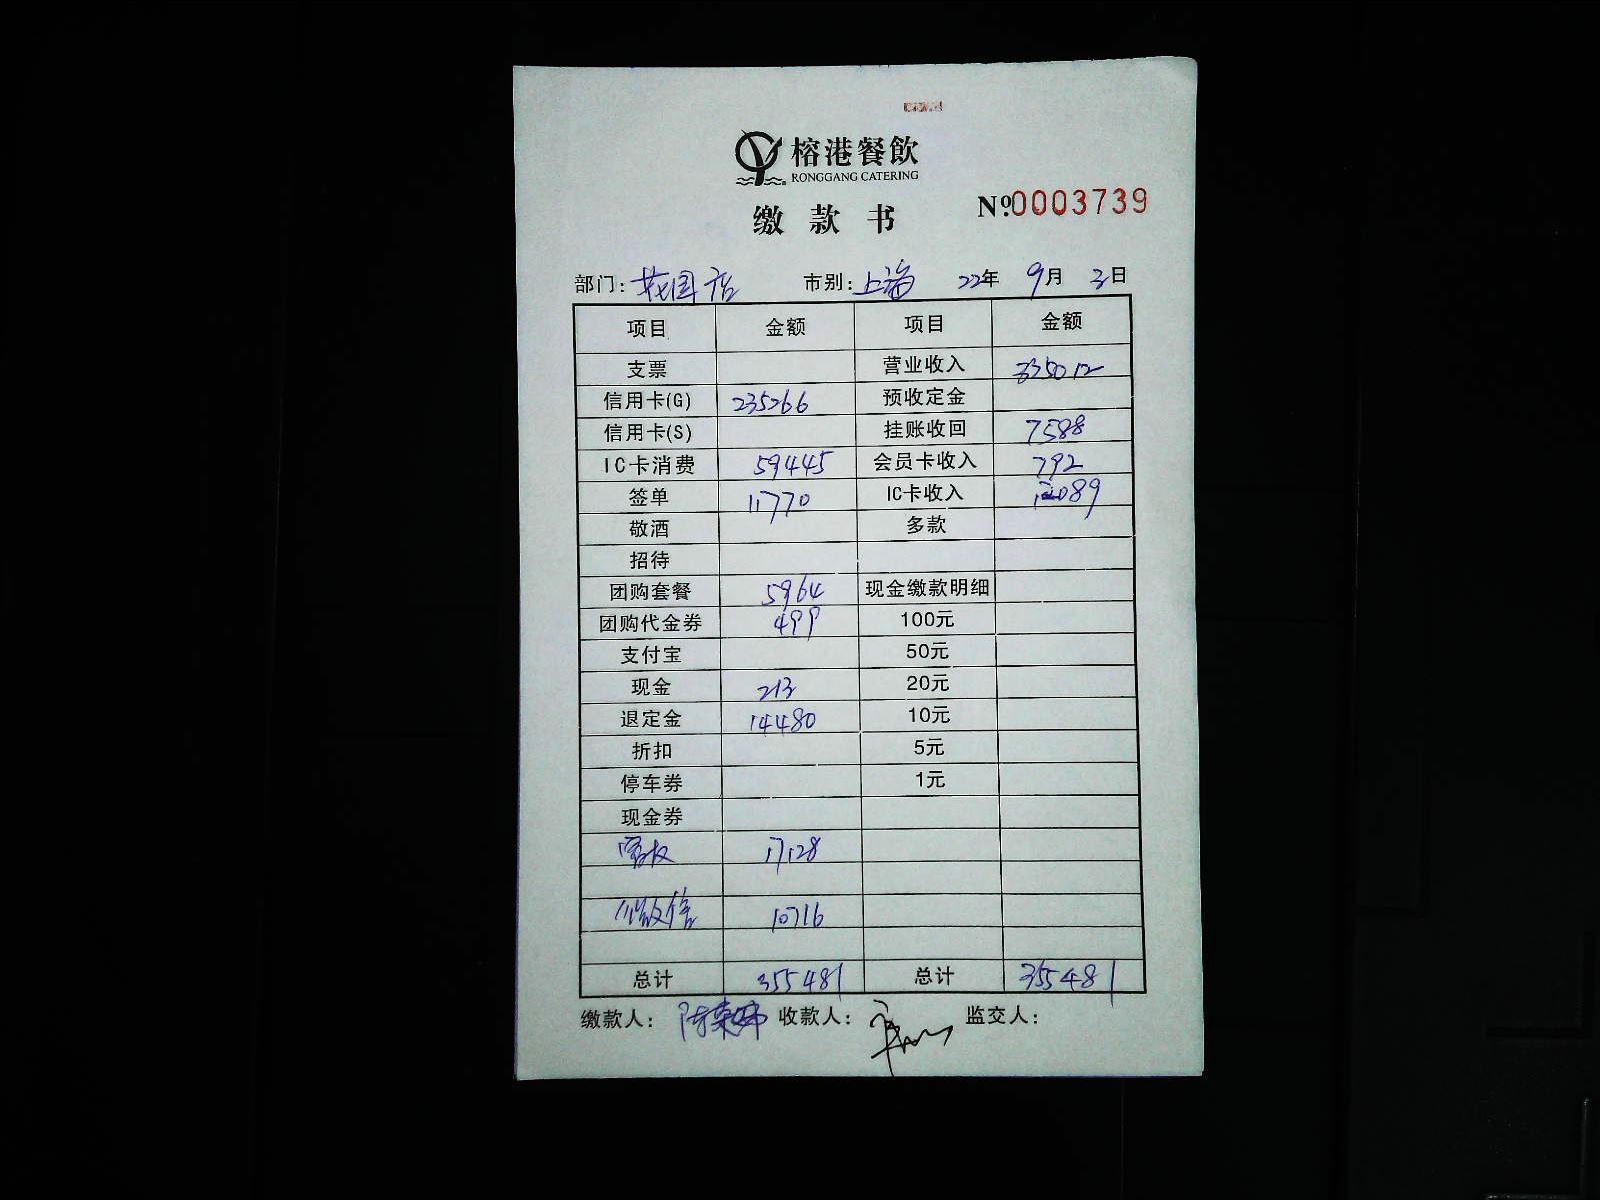 榕港餐飲
RONGGANG CATERING
缴款书
№0003739
部门: 花园店 市别: 上海 22年 9月 3日
项目 金额 项目 金额
支票 营业收入 335012
信用卡(G) 235266 预收定金
信用卡(S) 挂账收回 7588
IC卡消费 59445 会员卡收入 792
签单 11770 IC卡收入 12089
敬酒 多款
招待
团购套餐 5964 现金缴款明细
团购代金券 499 100元
支付宝 50元
现金 213 20元
退定金 14480 10元
折扣 5元
停车券 1元
现金券
17128
10716
总计 355481 总计 355481
缴款人: 收款人: 监交人: